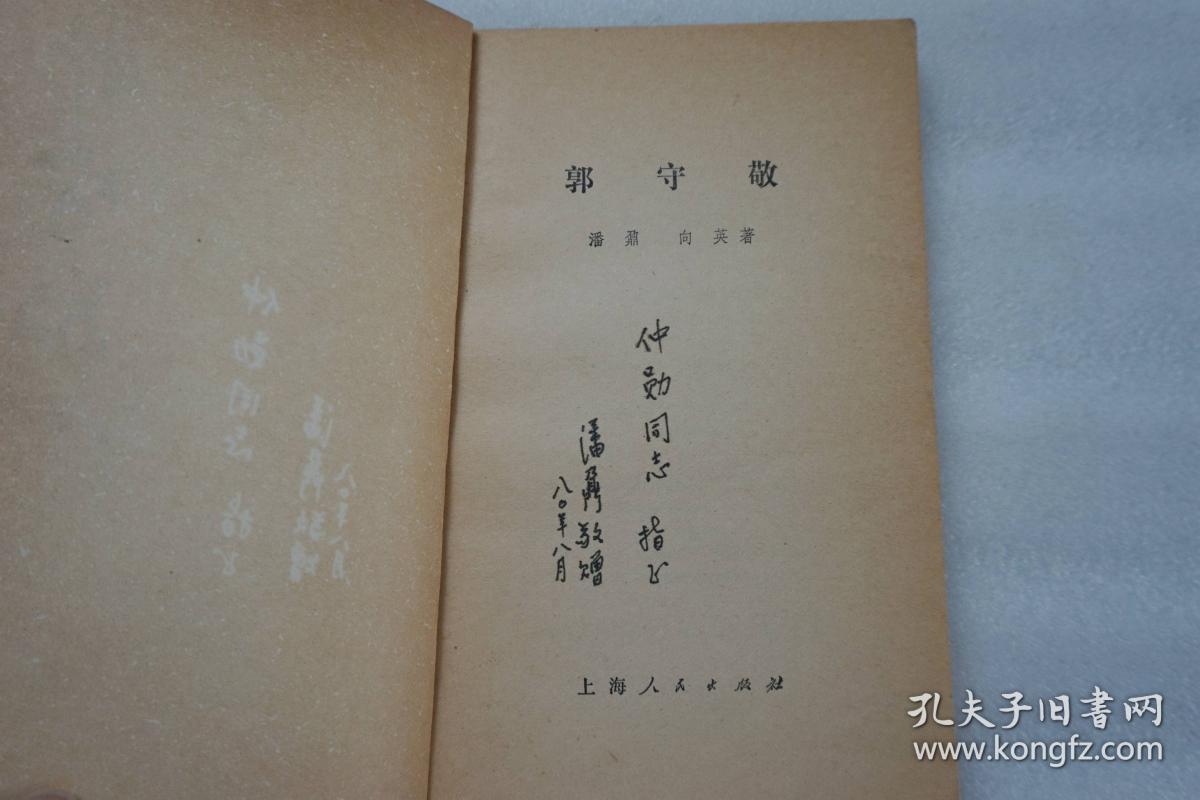 郭守敬
潘鼐 向英著
仲勋同志 指正
潘鼐敬赠
八〇年八月
上海人民出版社
孔夫子旧书网
www.kongfz.com